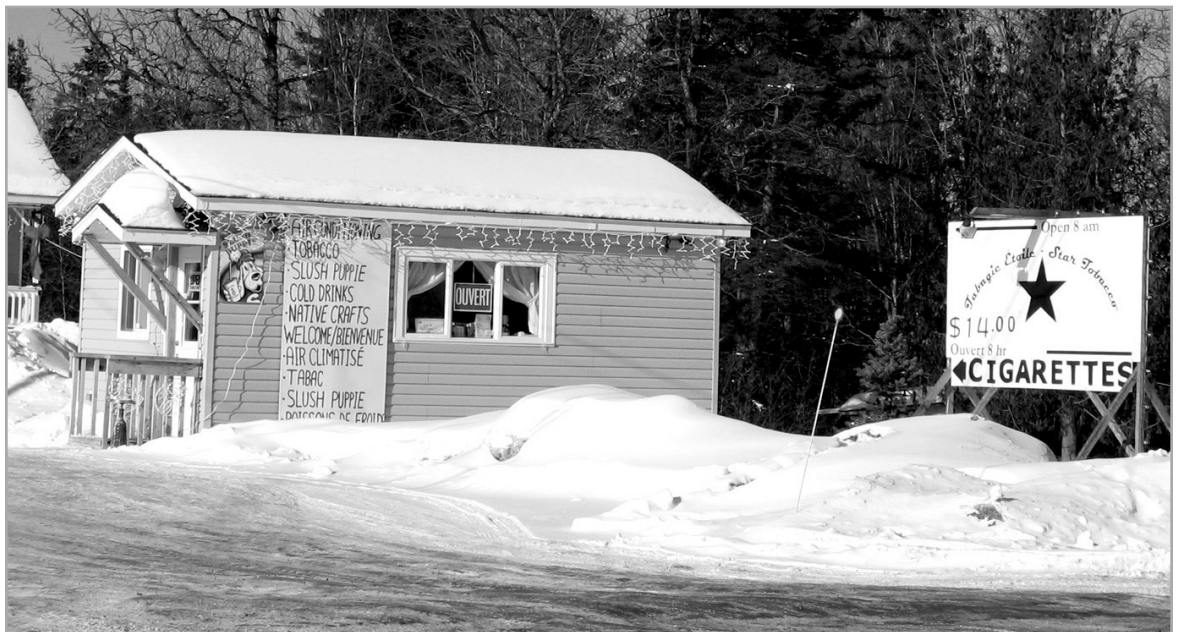 AIR CONDITIONING
· TOBACCO
· SLUSH PUPPIE
· COLD DRINKS
· NATIVE CRAFTS
WELCOME/BIENVENUE
· AIR CLIMATISÉ
· TABAC
· SLUSH PUPPIE
· BOISSONS DE FROID
OUVERT
Open 8 am
Tabagie Étoile · Star Tobacco
$14.00
Ouvert 8 hr
CIGARETTES